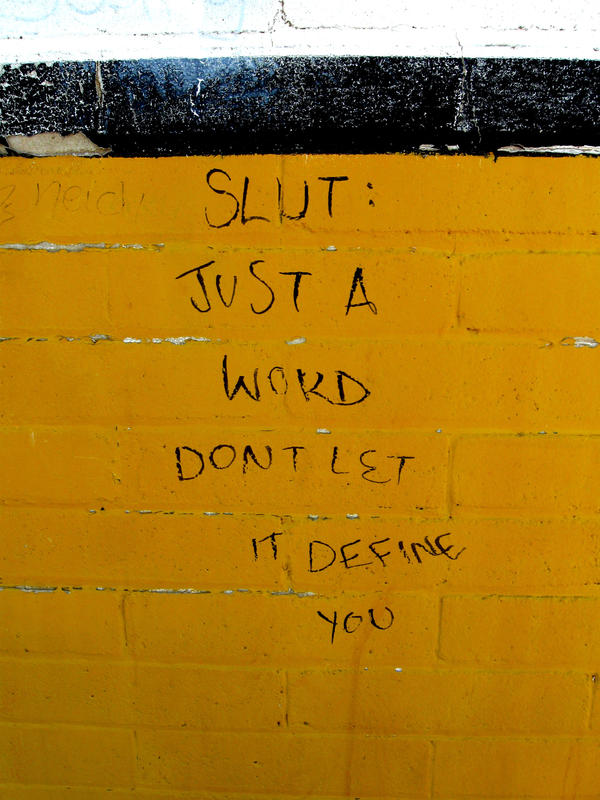 SLUT:
JUST A
WORD
DONT LET
IT DEFINE
YOU